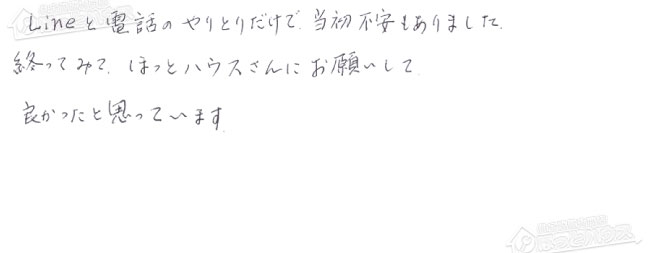 Lineと電話のやりとりだけで、当初不安もありました。
終ってみて、ほっとハウスさんにお願いして
良かったと思っています。